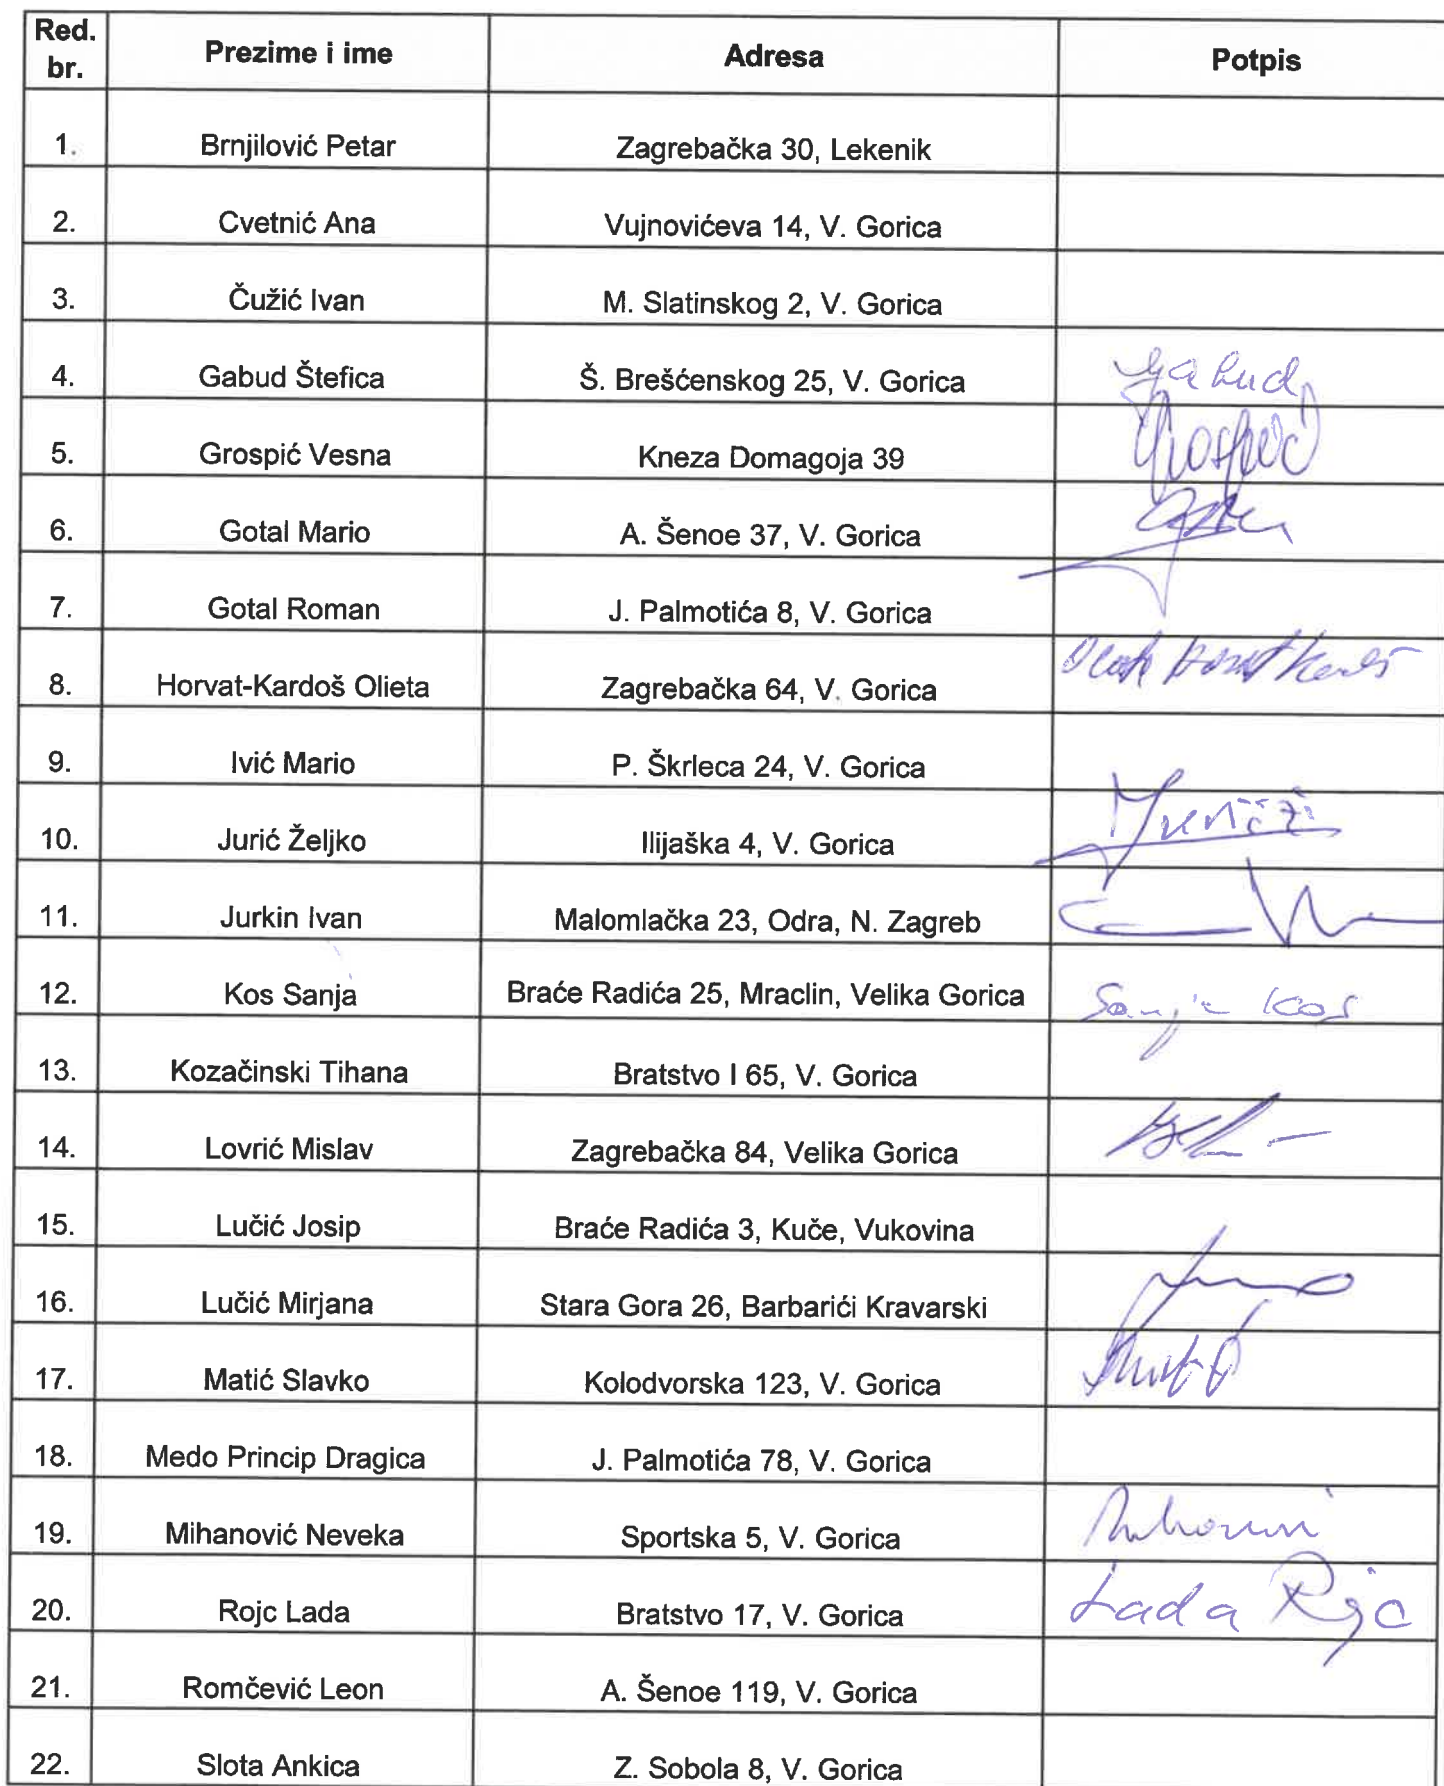 Red. br. Prezime i ime Adresa Potpis
1. Brnjilović Petar Zagrebačka 30, Lekenik
2. Cvetnić Ana Vujnovićeva 14, V. Gorica
3. Čužić Ivan M. Slatinskog 2, V. Gorica
4. Gabud Štefica Š. Brešćenskog 25, V. Gorica Gabud
5. Grospić Vesna Kneza Domagoja 39 Grospić
6. Gotal Mario A. Šenoe 37, V. Gorica
7. Gotal Roman J. Palmotića 8, V. Gorica
8. Horvat-Kardoš Olieta Zagrebačka 64, V. Gorica
9. Ivić Mario P. Škrleca 24, V. Gorica
10. Jurić Željko Ilijaška 4, V. Gorica
11. Jurkin Ivan Malomlačka 23, Odra, N. Zagreb
12. Kos Sanja Braće Radića 25, Mraclin, Velika Gorica Sanja Kos
13. Kozačinski Tihana Bratstvo I 65, V. Gorica
14. Lovrić Mislav Zagrebačka 84, Velika Gorica
15. Lučić Josip Braće Radića 3, Kuče, Vukovina
16. Lučić Mirjana Stara Gora 26, Barbarići Kravarski
17. Matić Slavko Kolodvorska 123, V. Gorica
18. Medo Princip Dragica J. Palmotića 78, V. Gorica
19. Mihanović Neveka Sportska 5, V. Gorica
20. Rojc Lada Bratstvo 17, V. Gorica Lada Rojc
21. Romčević Leon A. Šenoe 119, V. Gorica
22. Slota Ankica Z. Sobola 8, V. Gorica